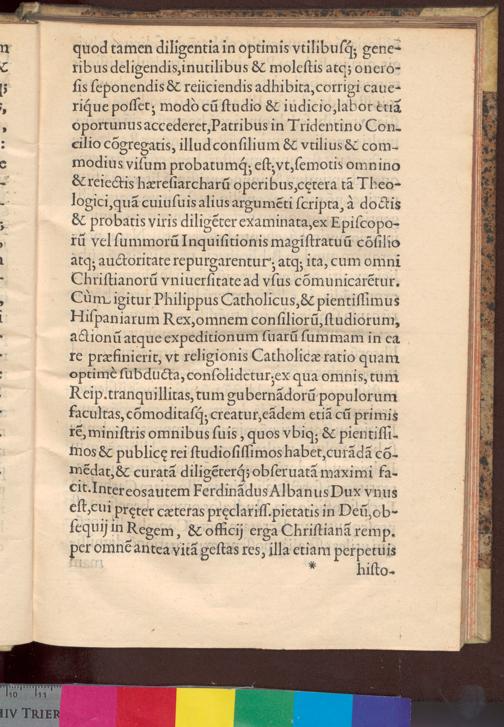 quod tamen diligentia in optimis vtilibusq́; gene-
ribus deligendis,inutilibus & molestis atq; onero-
sis seponendis & reiiciendis adhibita,corrigi caue-
rique posset; modò cũ studio & iudicio,labor etiã
oportunus accederet,Patribus in Tridentino Con-
cilio cõgregatis, illud consilium & vtilius & com-
modius visum probatumq́; est; vt,semotis omnino
& reiectis hæresiarcharũ operibus,cętera tã Theo-
logici,quã cuiusuis alius argumẽti scripta, à doctis
& probatis viris diligẽter examinata,ex Episcopo-
rũ vel summorũ Inquisitionis magistratuũ cõsilio
atq; auctoritate repurgarentur; atq; ita, cum omni
Christianorũ vniuersitate ad vsus cõmunicarẽtur.
Cùm igitur Philippus Catholicus,& pientissimus
Hispaniarum Rex,omnem consiliorũ,studiorum,
actionũ atque expeditionum suarũ summam in ea
re præfinierit, vt religionis Catholicæ ratio quam
optimè subducta, consolidetur;ex qua omnis, tum
Reip.tranquillitas, tum gubernãdorũ populorum
facultas, cõmoditasq́; creatur,eãdem etiã cũ primis
rẽ, ministris omnibus suis , quos vbiq; & pientissi-
mos & publicę rei studiosissimos habet,curãdã cõ-
mẽdat,& curatã diligẽterq́; obseruatã maximi fa-
cit.Inter eos autem Ferdinãdus Albanus Dux vnus
est,cui pręter cæteras pręclariss.pietatis in Deũ,ob-
sequij in Regem, & officij erga Christianã remp.
per omnẽ antea vitã gestas res, illa etiam perpetuis
* histo-
10 11
HIV TRIER